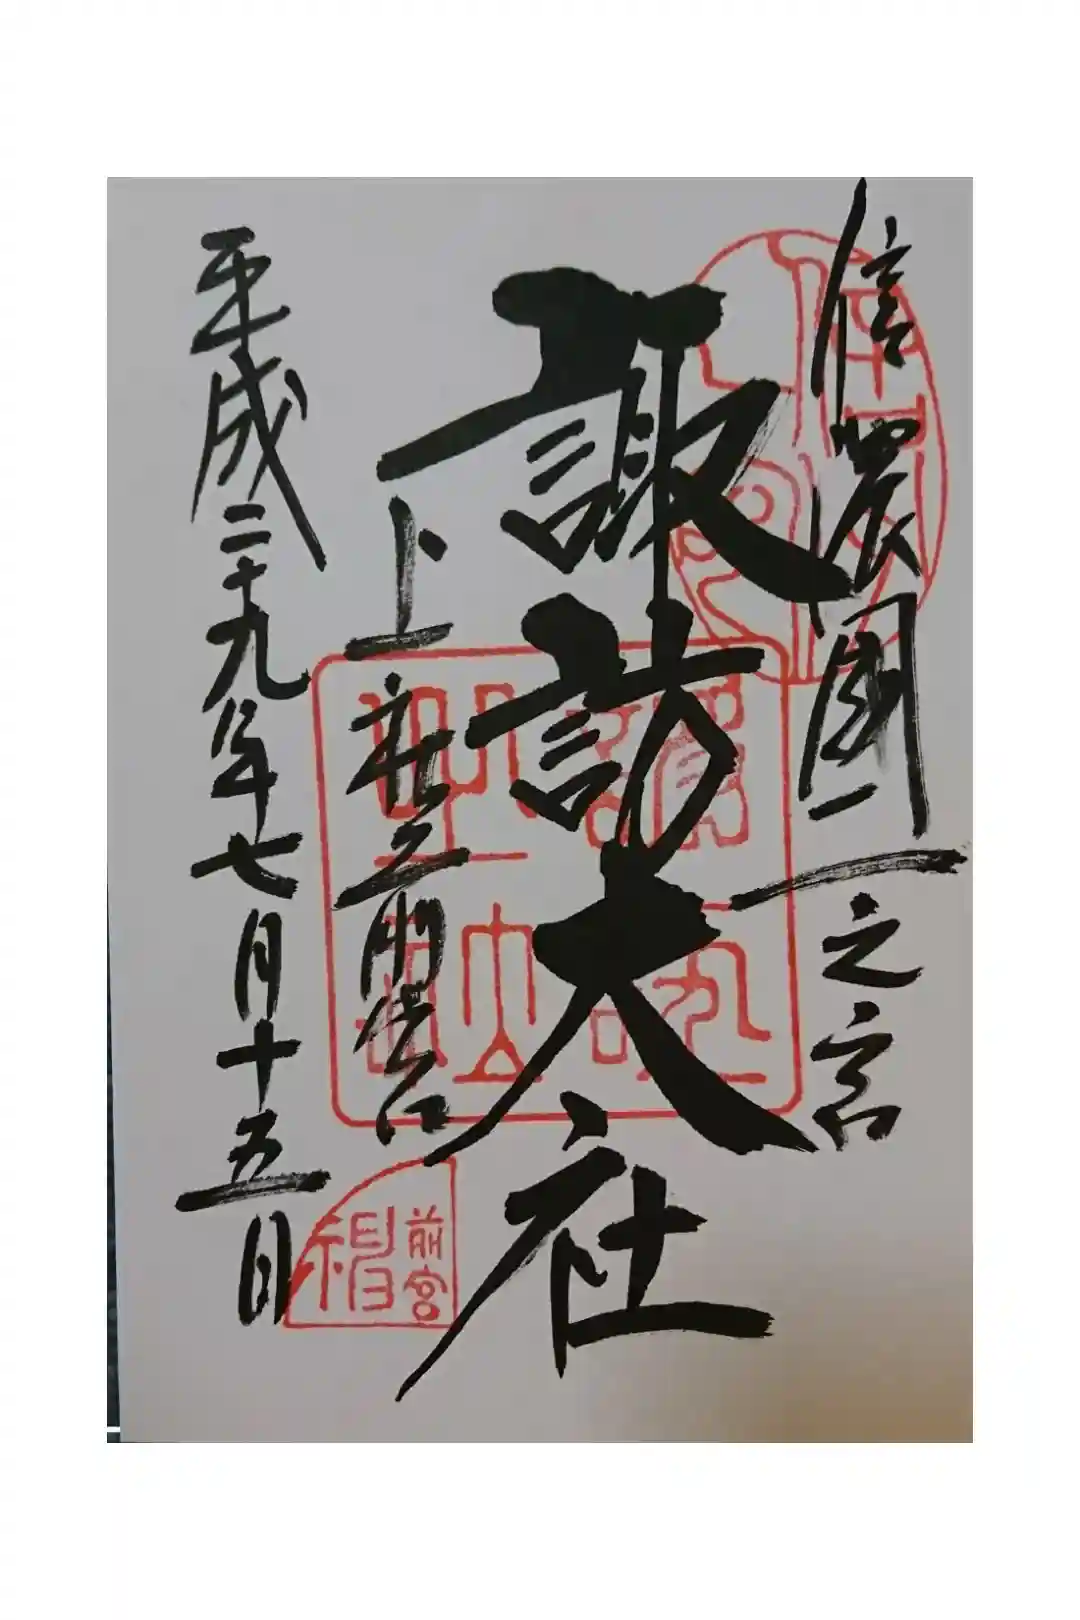 信濃國一之宮
諏訪大社
上社前宮
平成二十九年七月十五日
前宮